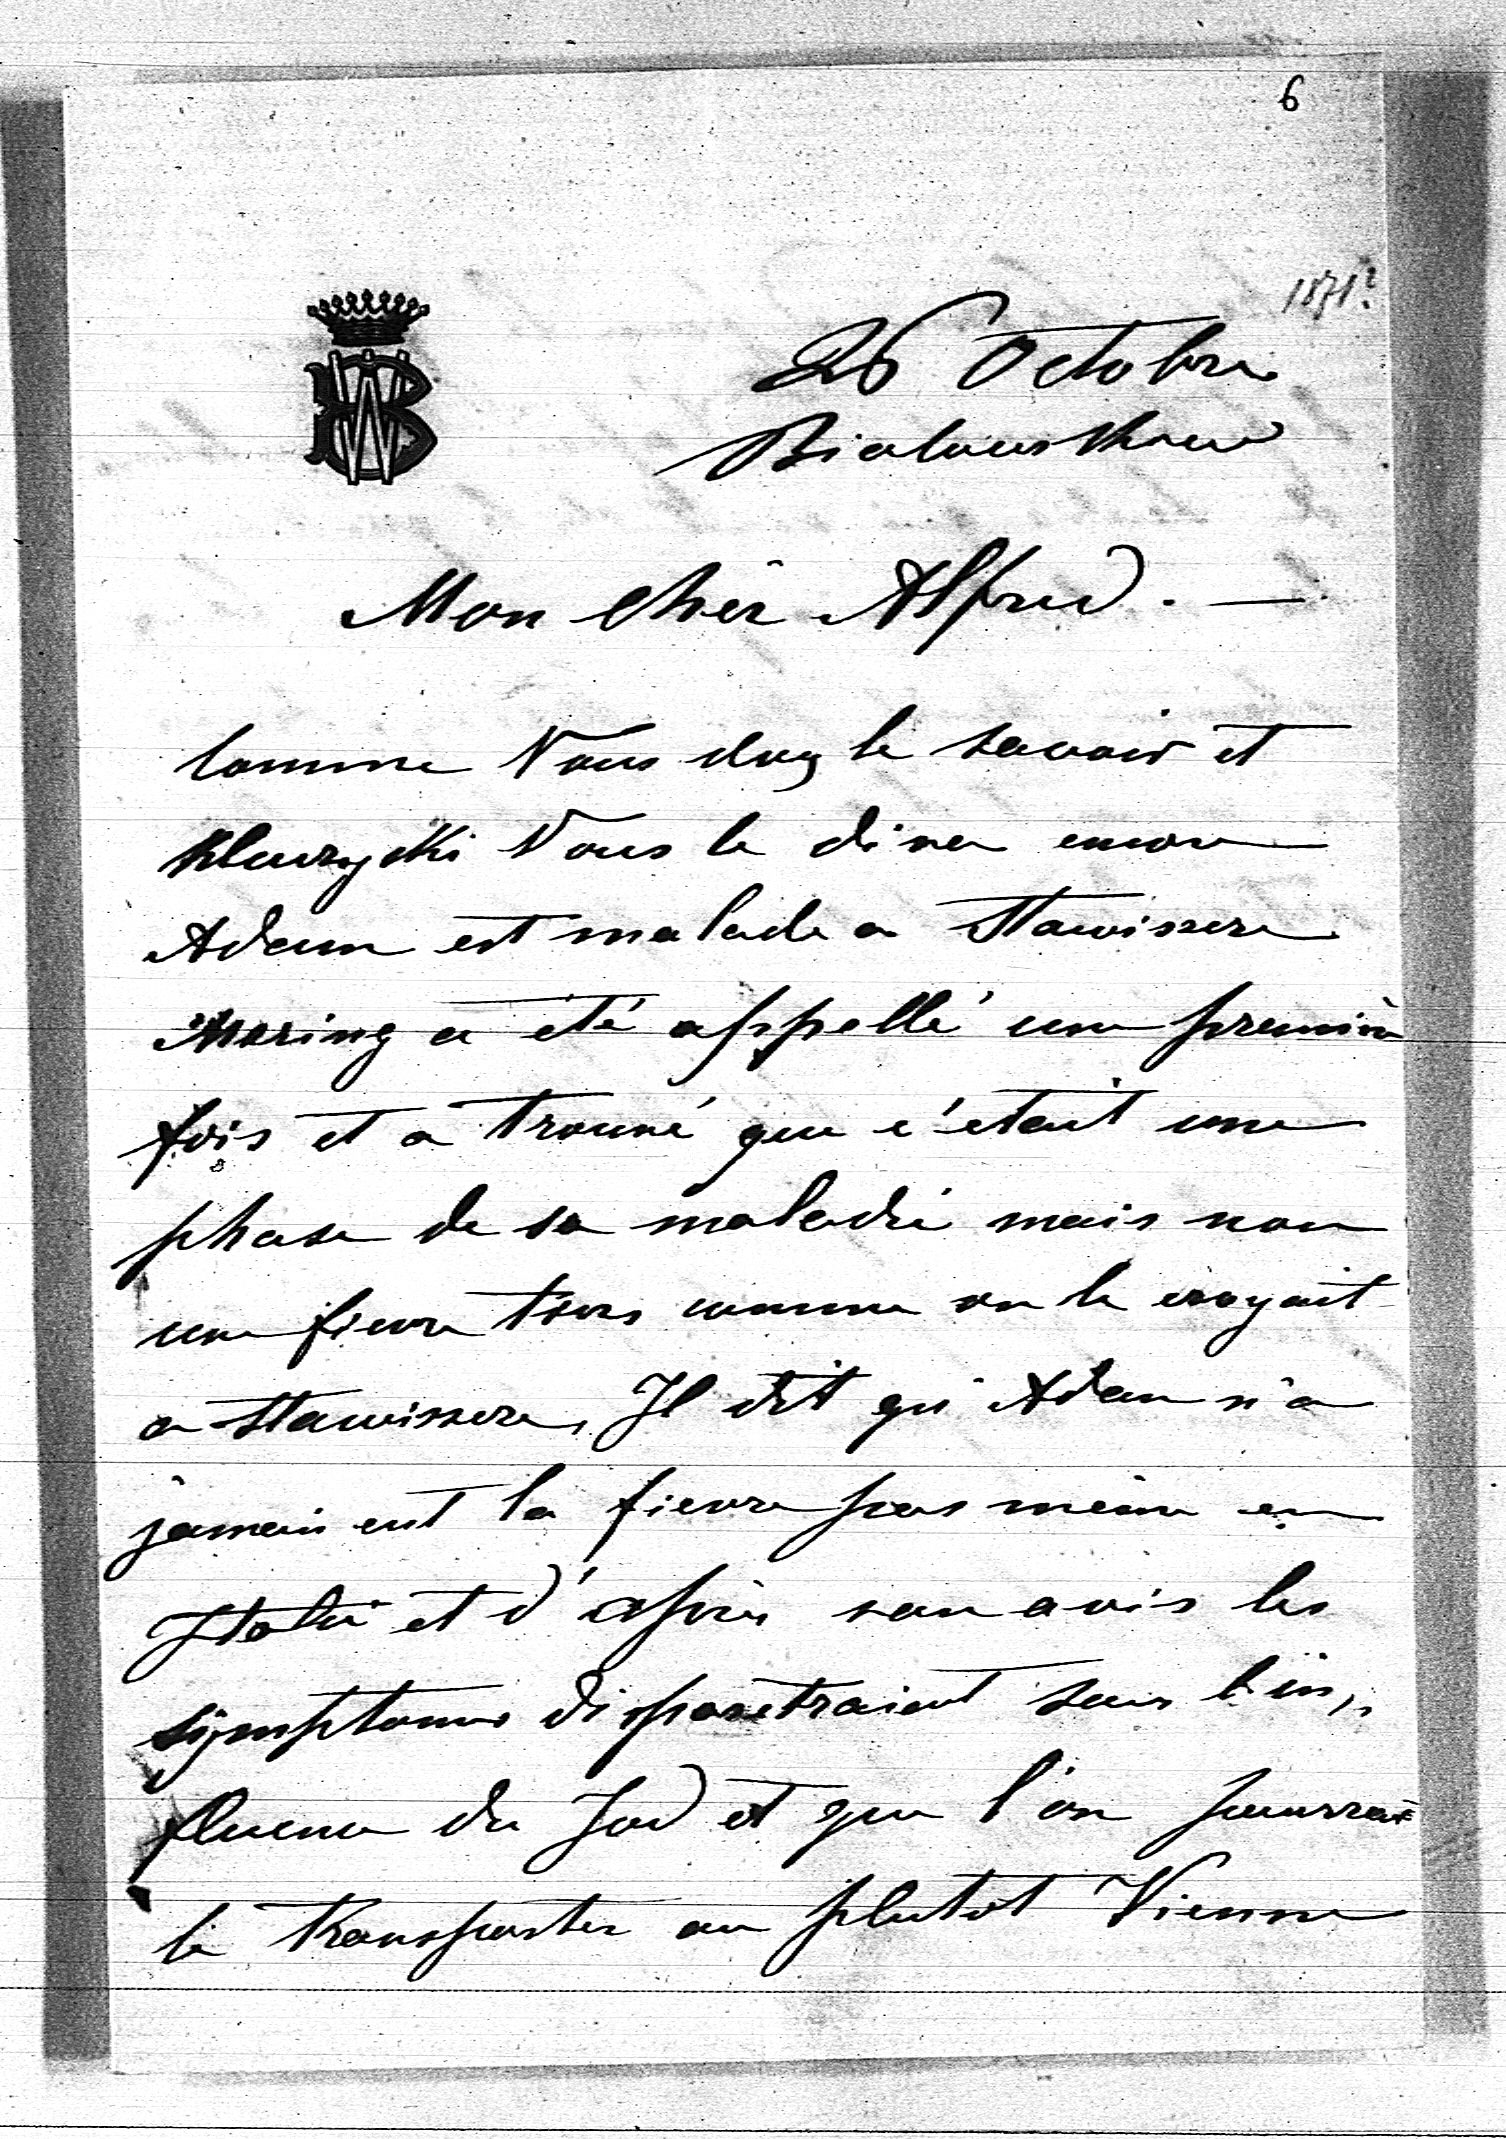 6
1871?
26 Octobre
Mon cher Alfred. —
Comme Vous devez le savoir et
Vous le dira encore
Adam est malade a Stawiszcze
Mering a été appellé une première
fois et a trouvé que c'etait une
phase de sa maladie mais non
une fievre tierce comme on le croyait
a Stawiszcze, Il dit qu'Adam n'a
jamais eut la fievre pas même en
Italie et d'après son avis les
symptomes disparetraient sous l'in„
fluence du Jod et que l'on pourrait
le transporter au plutot Vienne